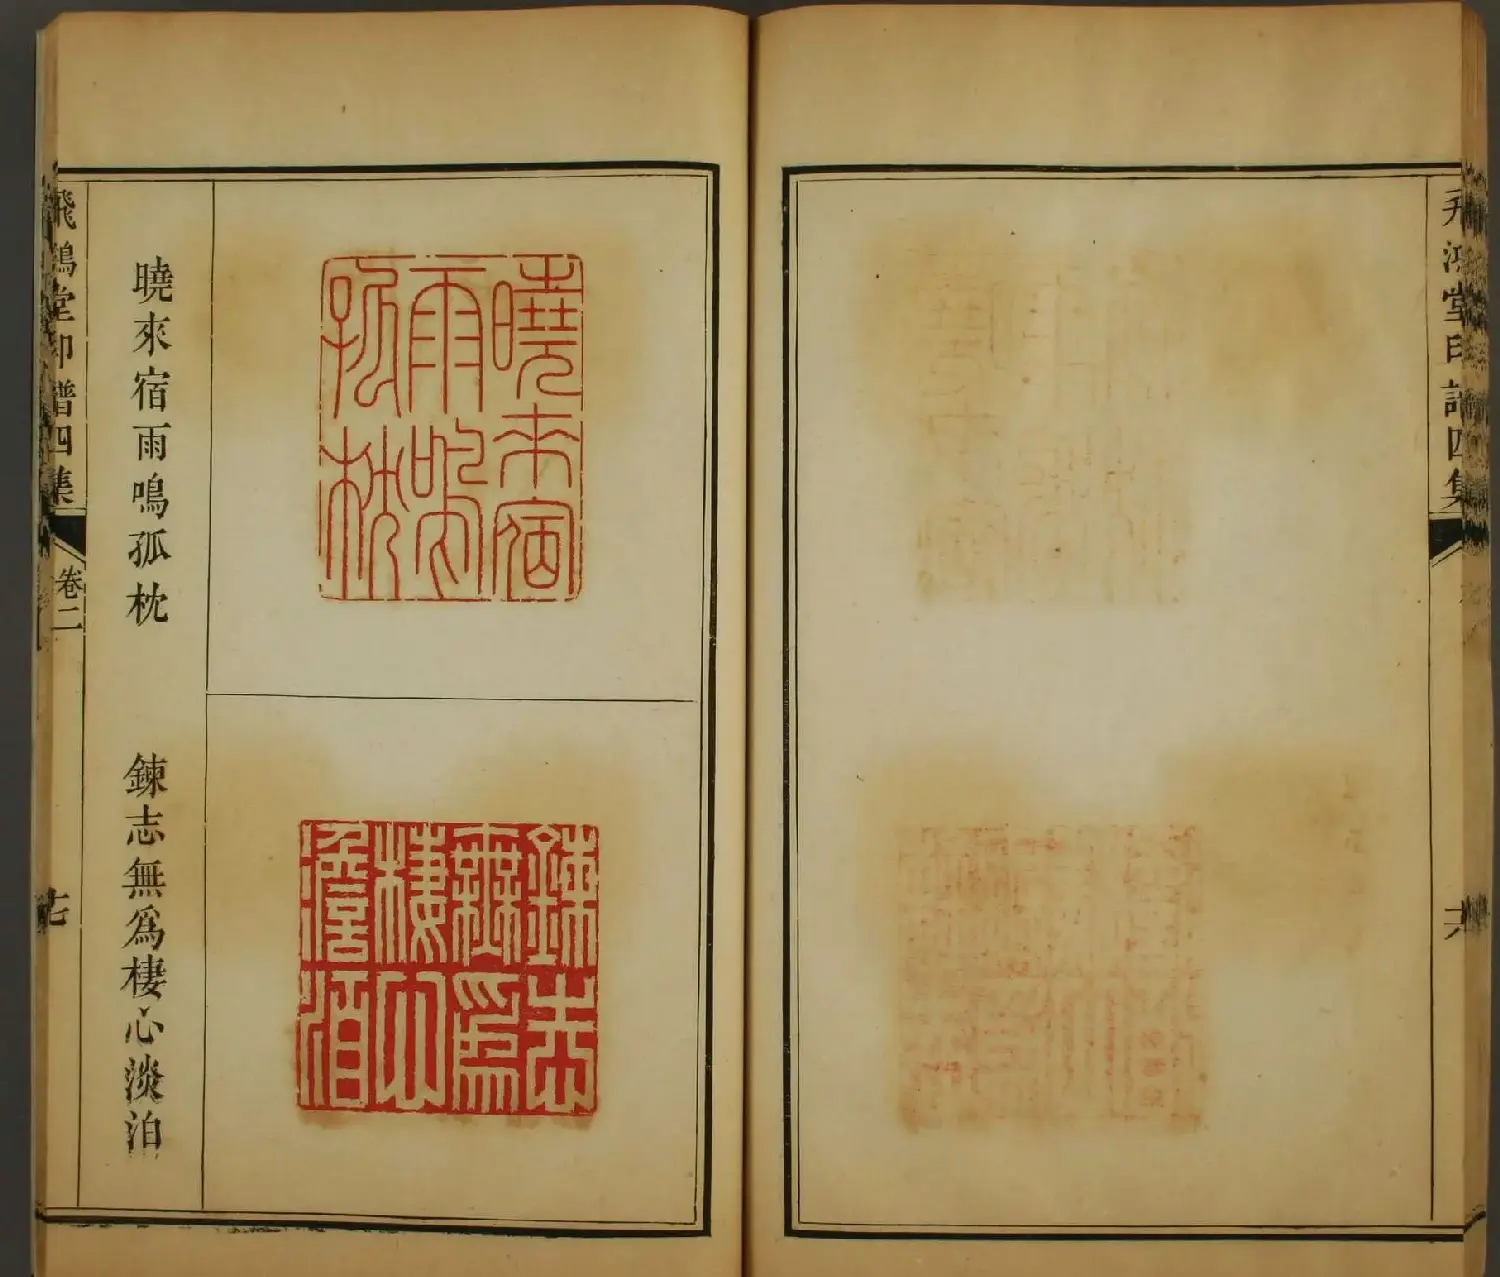 飛鴻堂印譜四集
卷二
十七
曉來宿雨鳴孤枕
曉來宿
雨鳴
孤枕
鍊志無爲棲心淡泊
鍊志
無爲
棲心
澹泊
飛鴻堂印譜四集